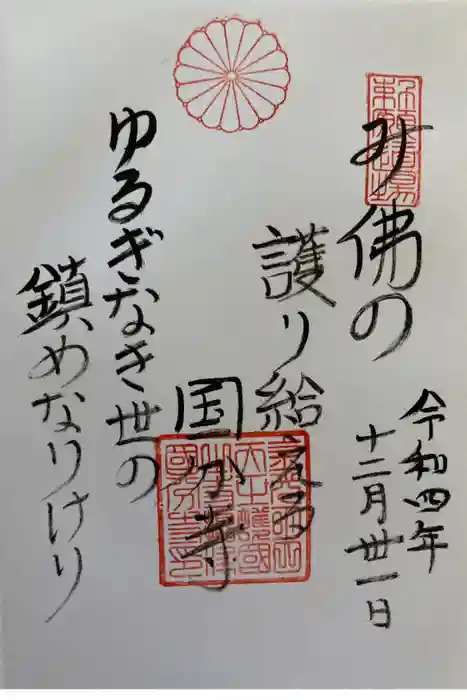 み佛の
護り給える
国分寺
ゆるぎなき世の
鎮めなりけり
令和四年
十二月丗一日
勅願道場